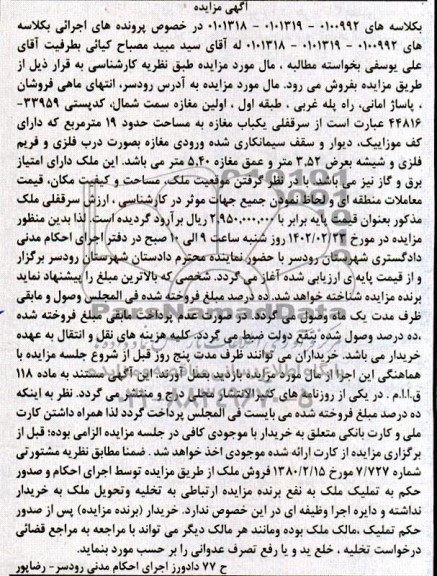 آگهی مزایده
بکلاسه های ۰۱۰۰۹۹۲ - ۰۱۰۱۳۱۹ - ۰۱۰۱۳۱۸ در خصوص پرونده های اجرائی بکلاسه
های ۰۱۰۰۹۹۲ - ۰۱۰۱۳۱۹ - ۰۱۰۱۳۱۸ له آقای سید مبید مصباح کیائی بطرفیت آقای
علی یوسفی بخواسته مطالبه ، مال مورد مزایده طبق نظریه کارشناسی به قرار ذیل از
طریق مزایده بفروش می رود. مال مورد مزایده به آدرس رودسر، انتهای ماهی فروشان
، پاساژ امانی، راه پله غربی ، طبقه اول ، اولین مغازه سمت شمال، کدپستی ۳۳۹۵۹-
۴۴۸۱۶ عبارت است از سرقفلی یکباب مغازه به مساحت حدود ۱۹ مترمربع که دارای
کف موزاییک، دیوار و سقف سیمانکاری شده ورودی مغازه بصورت درب فلزی و فریم
فلزی و شیشه بعرض ۳.۵۲ متر و عمق مغازه ۵.۴۰ متر می باشد. این ملک دارای امتیاز
برق و گاز نیز می باشد. با در نظر گرفتن موقعیت ملک، مساحت و کیفیت مکان، قیمت
معاملات منطقه ای و لحاظ نمودن جمیع جهات موثر در کارشناسی ، ارزش سرقفلی ملک
مذکور بعنوان قیمت پایه برابر با ۲.۹۵۰.۰۰۰.۰۰۰ ریال برآورد گردیده است. لذا بدین منظور
مزایده در مورخ ۱۴۰۲/۰۲/۲۳ روز شنبه ساعت ۹ الی ۱۰ صبح در دفتر اجرای احکام مدنی
دادگستری شهرستان رودسر با حضور نماینده محترم دادستان شهرستان رودسر برگزار
و از قیمت پایه ی ارزیابی شده آغاز می گردد. شخصی که بالاترین مبلغ را پیشنهاد نماید
برنده مزایده شناخته خواهد شد. ده درصد مبلغ فروخته شده فی المجلس وصول و مابقی
ظرف مدت یک ماه وصول می گردد. در صورت عدم پرداخت مابقی مبلغ فروخته شده
،ده درصد وصول شده بنفع دولت ضبط می گردد. کلیه هزینه های نقل و انتقال به عهده
خریدار می باشد. خریداران می توانند ظرف مدت پنج روز قبل از شروع جلسه مزایده با
هماهنگی این اجرا از مال مورد مزایده بازدید بعمل آورند. این آگهی مستندا به ماده ۱۱۸
ق.ا.ا.م . در یکی از روزنامه های کثیرالانتشار محلی درج و منتشر می گردد. نظر به اینکه
ده درصد مبلغ فروخته شده می بایست فی المجلس پرداخت گردد لذا همراه داشتن کارت
ملی و کارت بانکی متعلق به خریدار با موجودی کافی در جلسه مزایده الزامی بوده؛ قبل از
برگزاری مزایده از کارت ارائه شده موجودی اخذ خواهد شد . ضمنا مطابق نظریه مشورتی
شماره ۷/۷۲۷ مورخ ۱۳۸۰/۲/۱۵ فروش ملک از طریق مزایده توسط اجرای احکام و صدور
حکم به تملیک ملک به نفع برنده مزایده ارتباطی به تخلیه وتحویل ملک به خریدار
نداشته و دایره اجرا وظیفه ای در این خصوص ندارد. خریدار (برنده مزایده) پس از صدور
حکم تملیک ،مالک ملک بوده ومانند هر مالک دیگر می تواند با مراجعه به مراجع قضائی
درخواست تخلیه ، خلع ید و یا رفع تصرف عدوانی را بر حسب مورد بنماید.
ح ۷۷ دادورز اجرای احکام مدنی رودسر- رضاپور